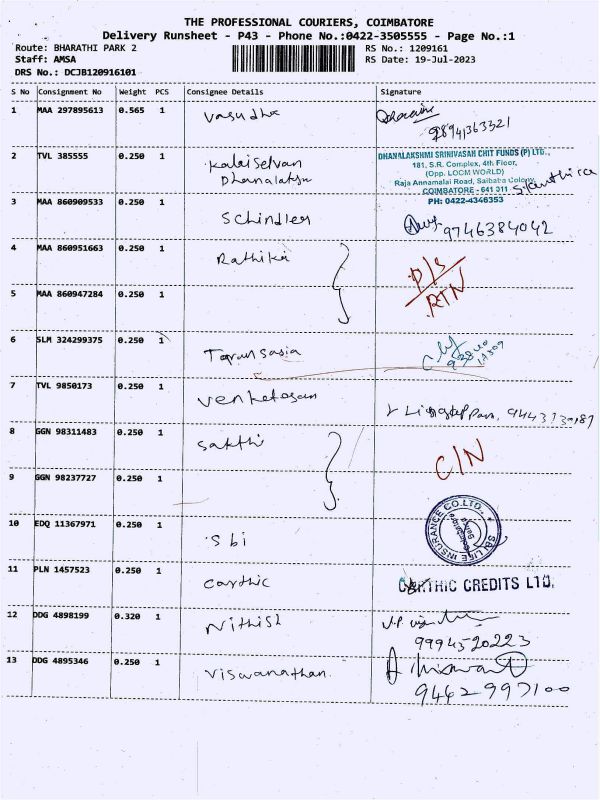 THE PROFESSIONAL COURIERS, COIMBATORE
Delivery Runsheet - P43 - Phone No.:0422-3505555 - Page No.:1
Route: BHARATHI PARK 2 RS No.: 1209161
Staff: AMSA RS Date: 19-Jul-2023
DRS No.: DCJB120916101
S No Consignment No Weight PCS Consignee Details Signature
1 MAA 297895613 0.565 1 Vasudha
2 TVL 385555 0.250 1 Kalaiselvan
DHANALAKSHMI SRINIVASAN CHIT FUNDS (P) LTD.,
181, S.R. Complex, 4th Floor,
(Opp. LOOM WORLD)
Raja Annamalai Road, Saibaba Colony,
COIMBATORE - 641 011
PH: 0422-4346353
3 MAA 860909533 0.250 1 Schindler 9746384042
4 MAA 860951663 0.250 1 Rathika P/S
RTN
5 MAA 860947284 0.250 1
6 SLM 324299375 0.250 1
7 TVL 9850173 0.250 1 Venketesan
8 GGN 98311483 0.250 1 Sakthi C/N
9 GGN 98237727 0.250 1
10 EDQ 11367971 0.250 1 Sbi
SBI LIFE INSURANCE CO.LTD.,
11 PLN 1457523 0.250 1 Carthic CARTHIC CREDITS LTD.
12 DDG 4898199 0.320 1 Nithish
9994520223
13 DDG 4895346 0.250 1 Viswanathan
9442997100